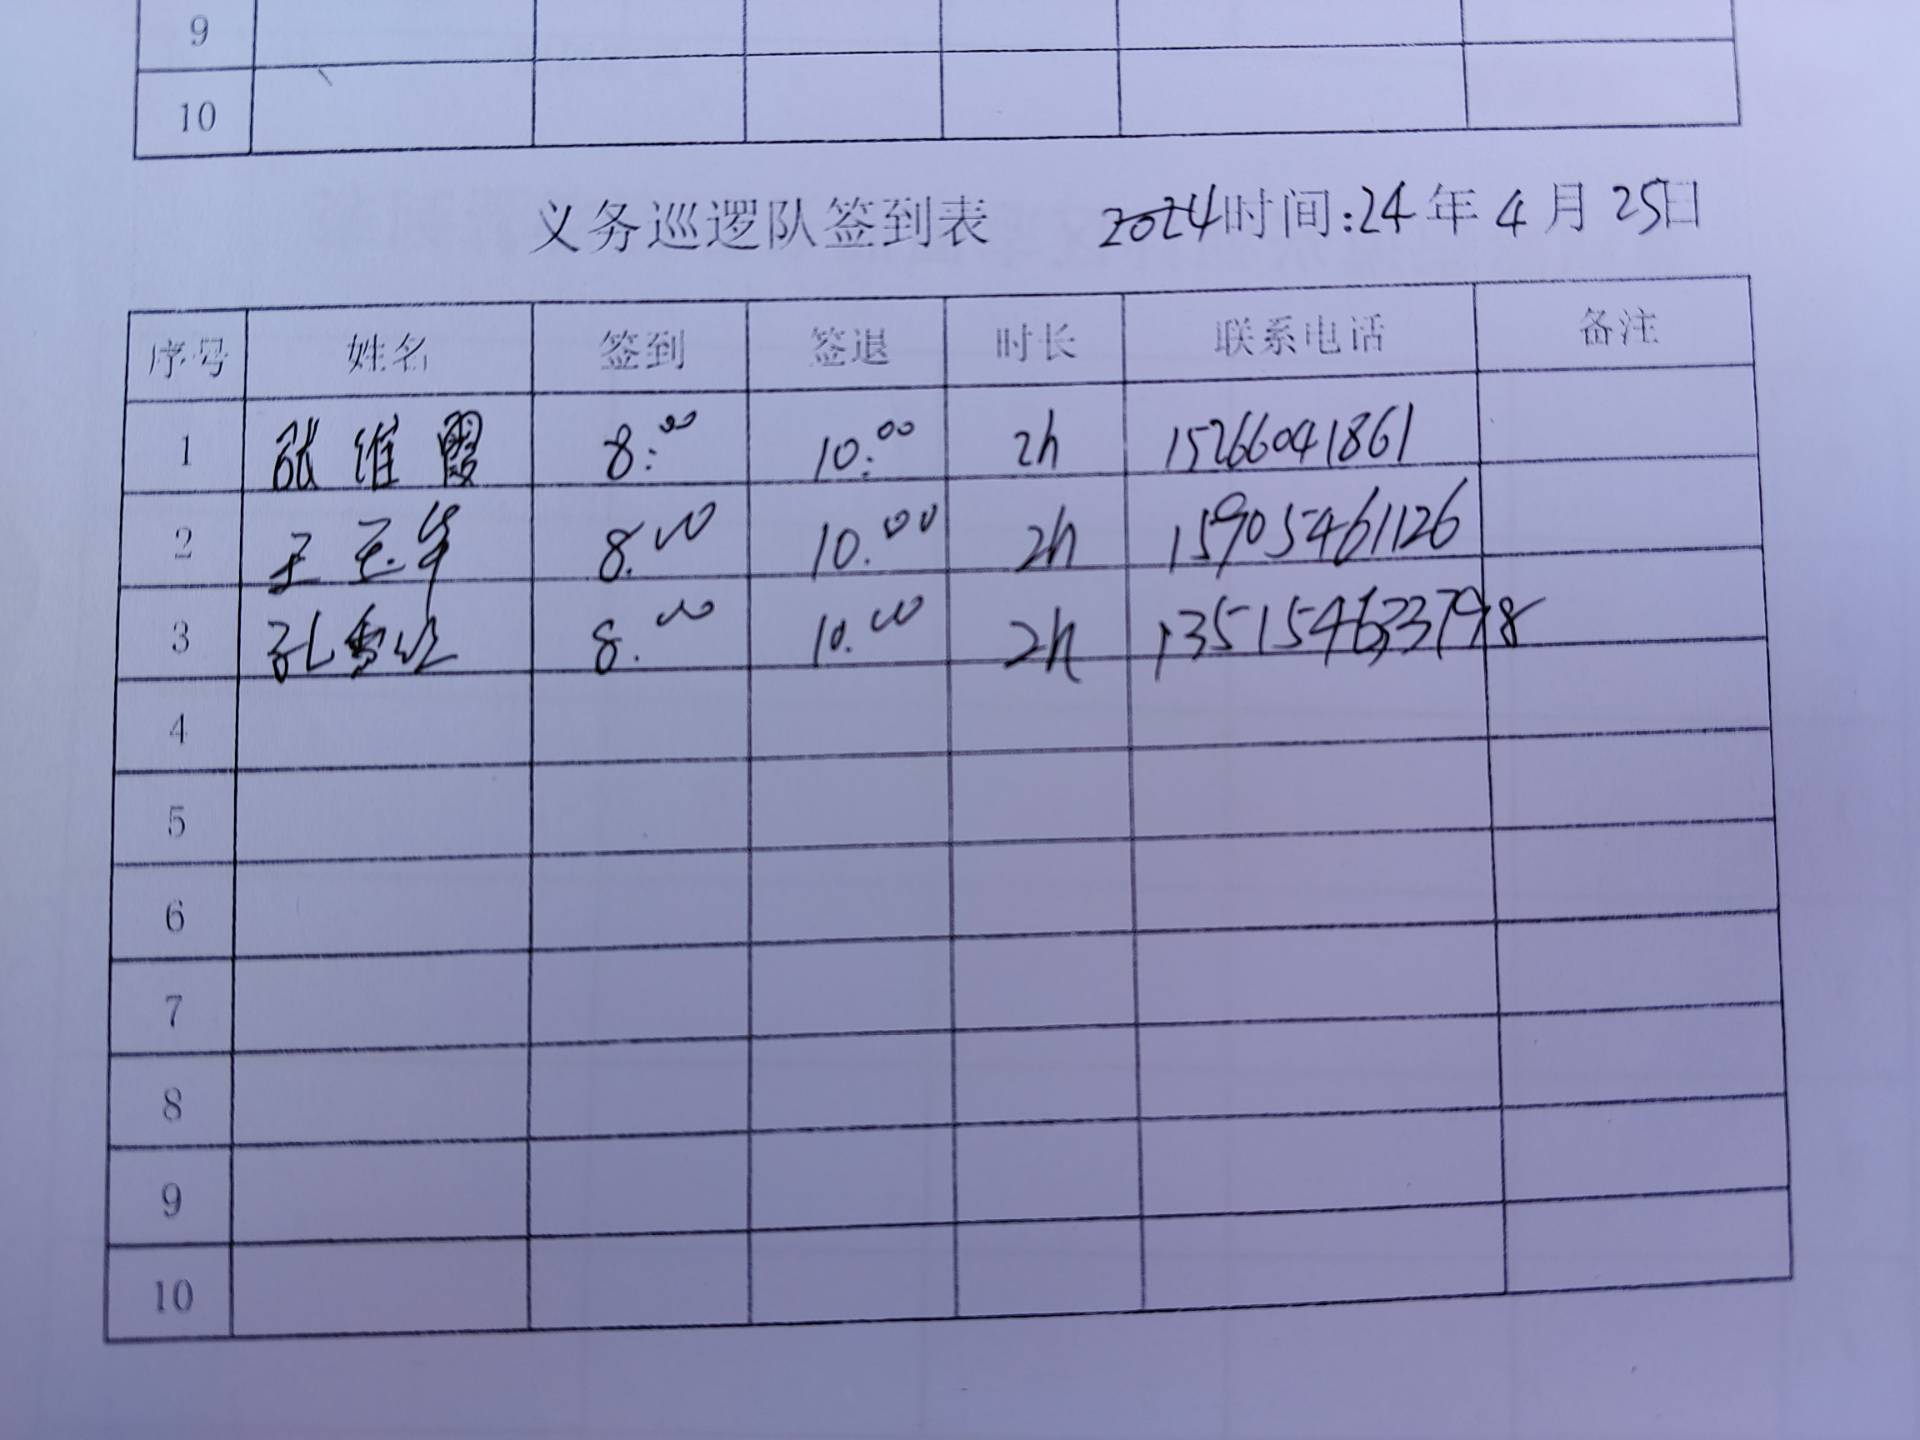 9
10
义务巡逻队签到表 2024时间:24年4月25日
序号 姓名 签到 签退 时长 联系电话 备注
1 张维霞 8:00 10:00 2h 15266041861
2 王玉华 8.00 10.00 2h 15905461126
3 孔 8.00 10.00 2h
4
5
6
7
8
9
10